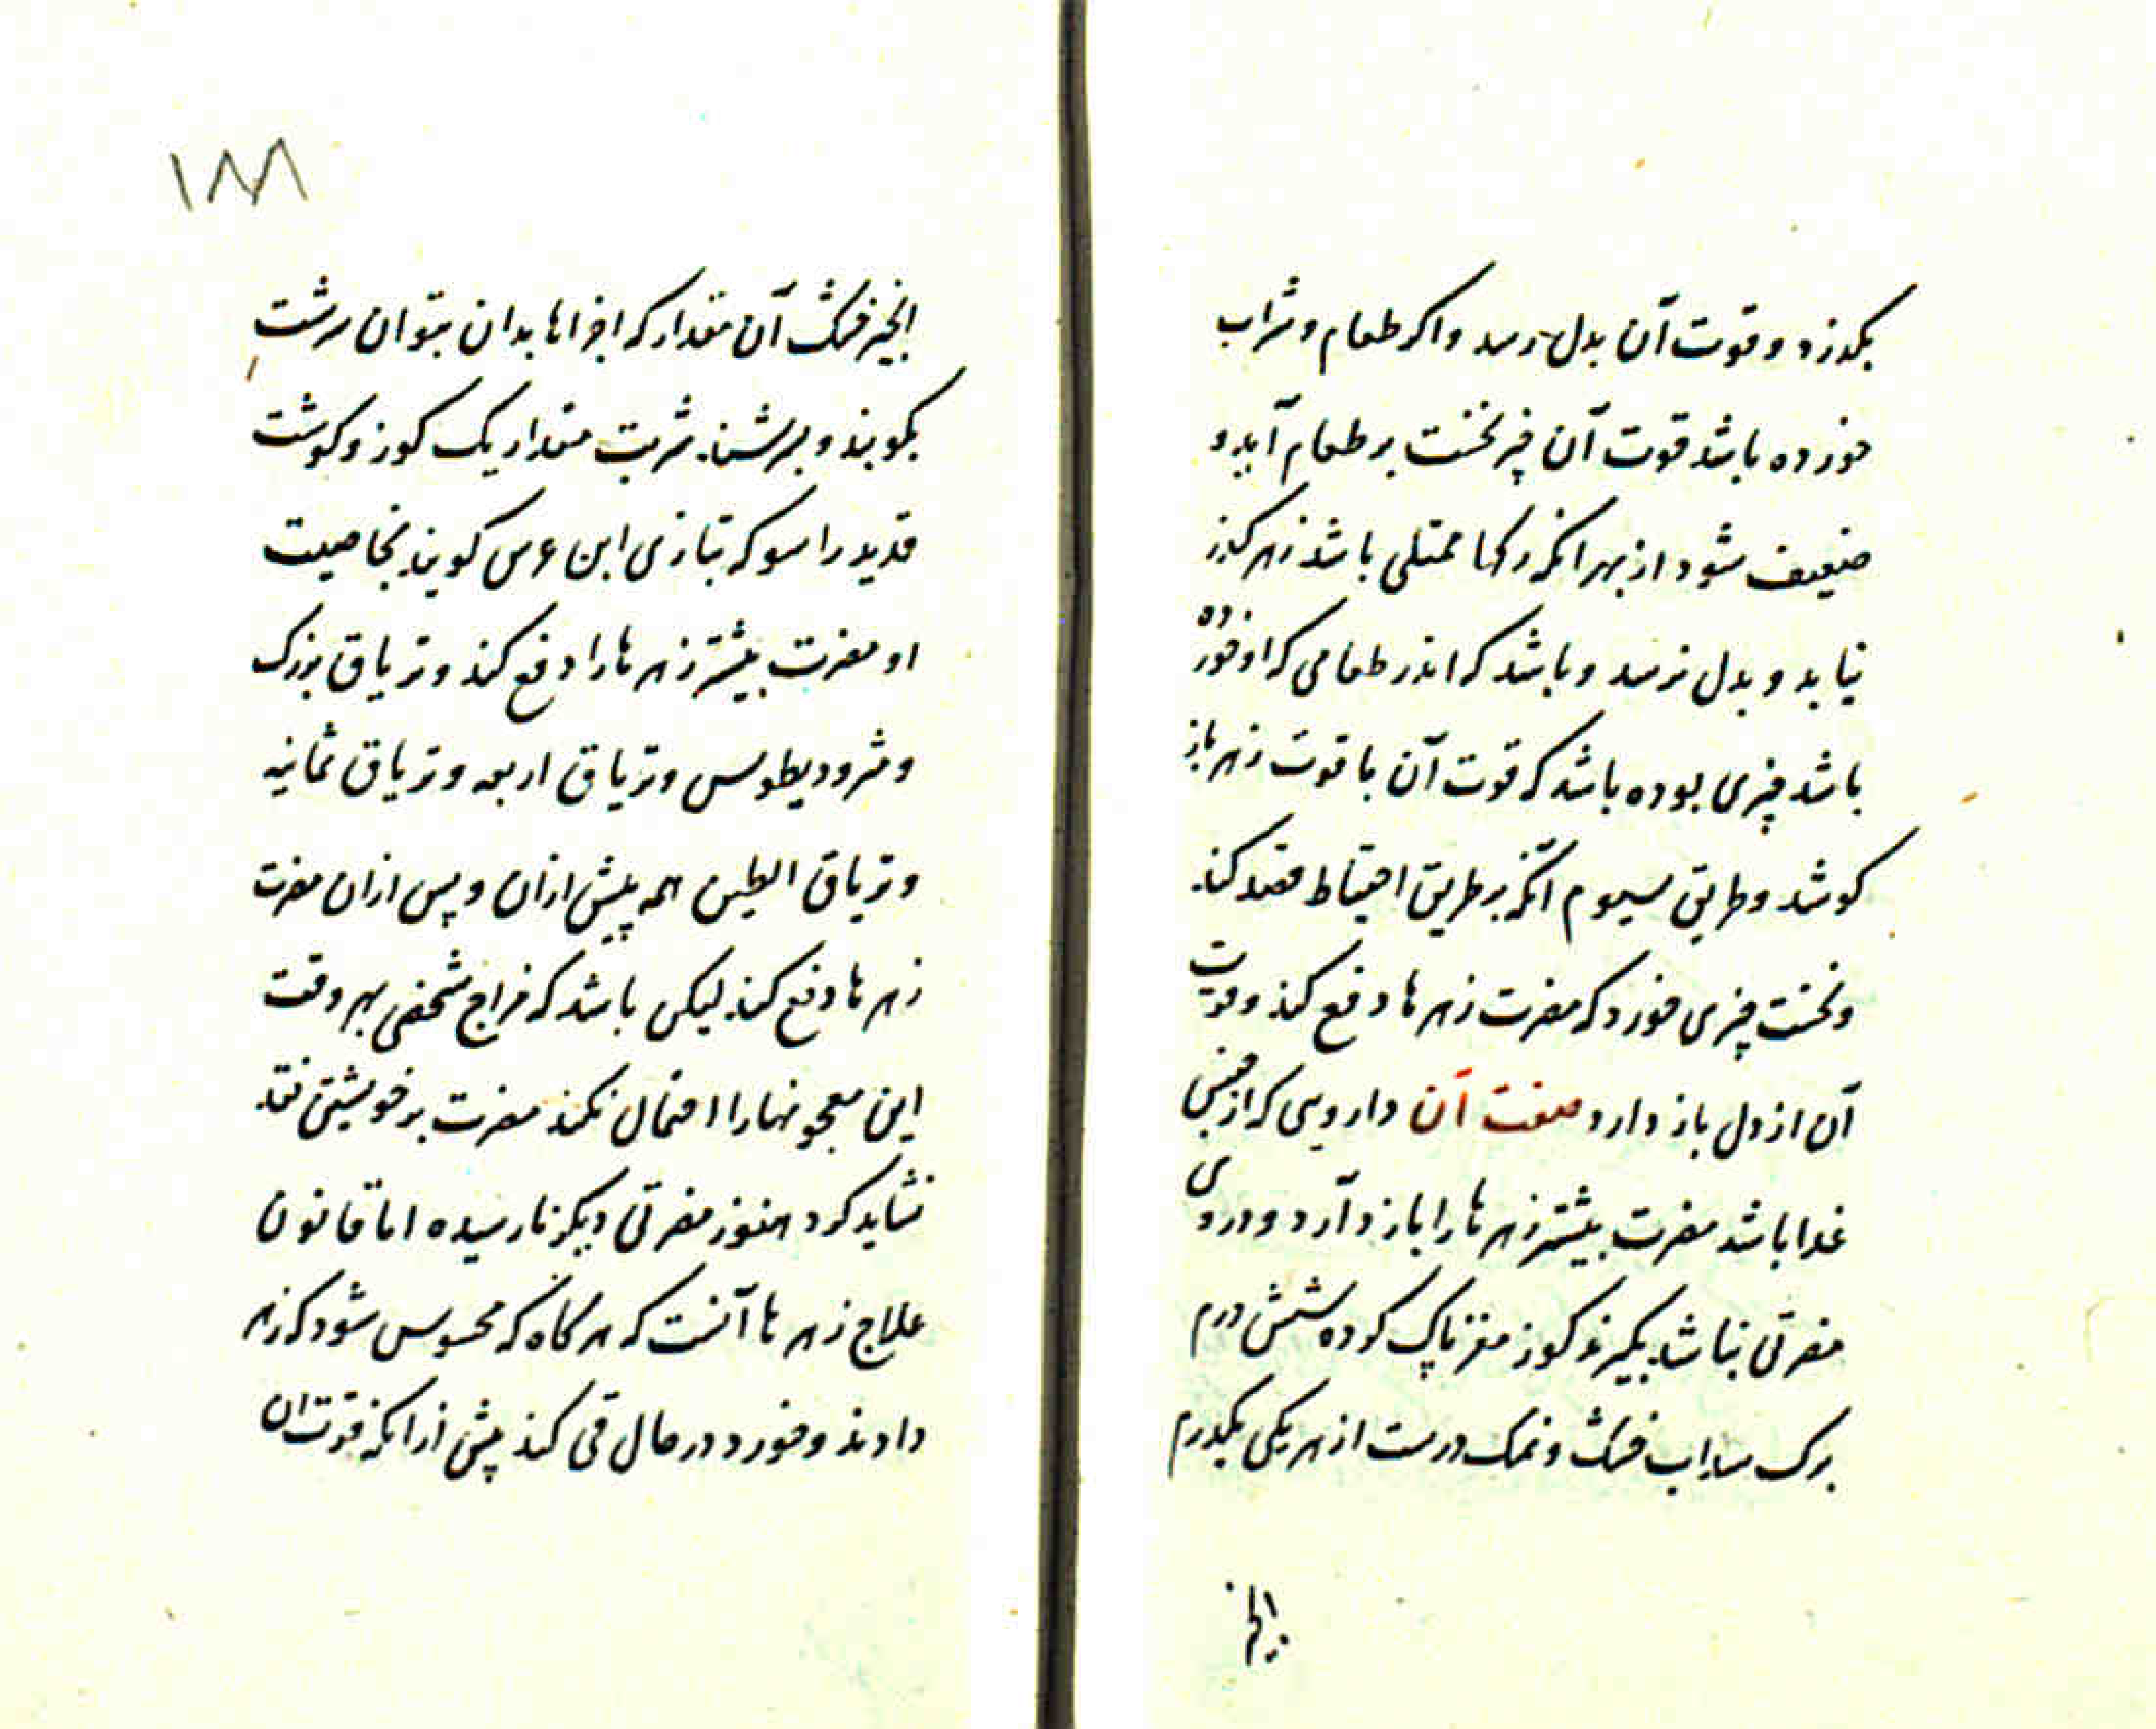 بگذرد و قوت آن بدل رسد و اگر طعام و شراب
خورده باشد قوت آن چیز نخست بر طعام آید و
ضعیف شود از بهر انکه رکها ممتلی باشد زهر گذر
نیابد و بدل نرسد و باشد که اندر طعامی که او خورده
باشد چیزی بوده باشد که قوت آن با قوت زهر باز
کوشد و طریق سیوم آنکه بر طریق احتیاط قصد کند
و نخست چیزی خورد که مضرت زهرها دفع کند و قوت
آن از دل باز دارد صفت آن دارویی که از جنس
غذا باشد مضرت بیشتر زهرها را باز دارد و در وی
مضرتی نباشد بگیرند کوز مغز پاک کرده شش درم
برک سداب خشک و نمک درست از هر یکی یکدرم
انجیر
۱۸۸
انجیر خشک آن مقدار که اجزاها بدان بتوان سرشت
بکوبند و بسرشند شربت مقدار یک کوز و کوشت
قدید راسو که بتازی ابن عرس کویند بخاصیت
او مضرت بیشتر زهرها را دفع کند و تریاق بزرک
و مثرودیطوس و تریاق اربعه و تریاق ثمانیه
و تریاق الطین همه پیش ازان و پس ازان مضرت
زهرها دفع کند لیکن باشد که مزاج شخصی بهر وقت
این معجونها را احتمال نکند مضرت بر خویشتن نقد
نشاید کرد هنوز مضرتی دیگر نارسیده اما قانون
علاج زهرها آنست که هرگاه که محسوس شود که زهر
دادند و خورد در حال قی کند پیش از انکه قوت ان